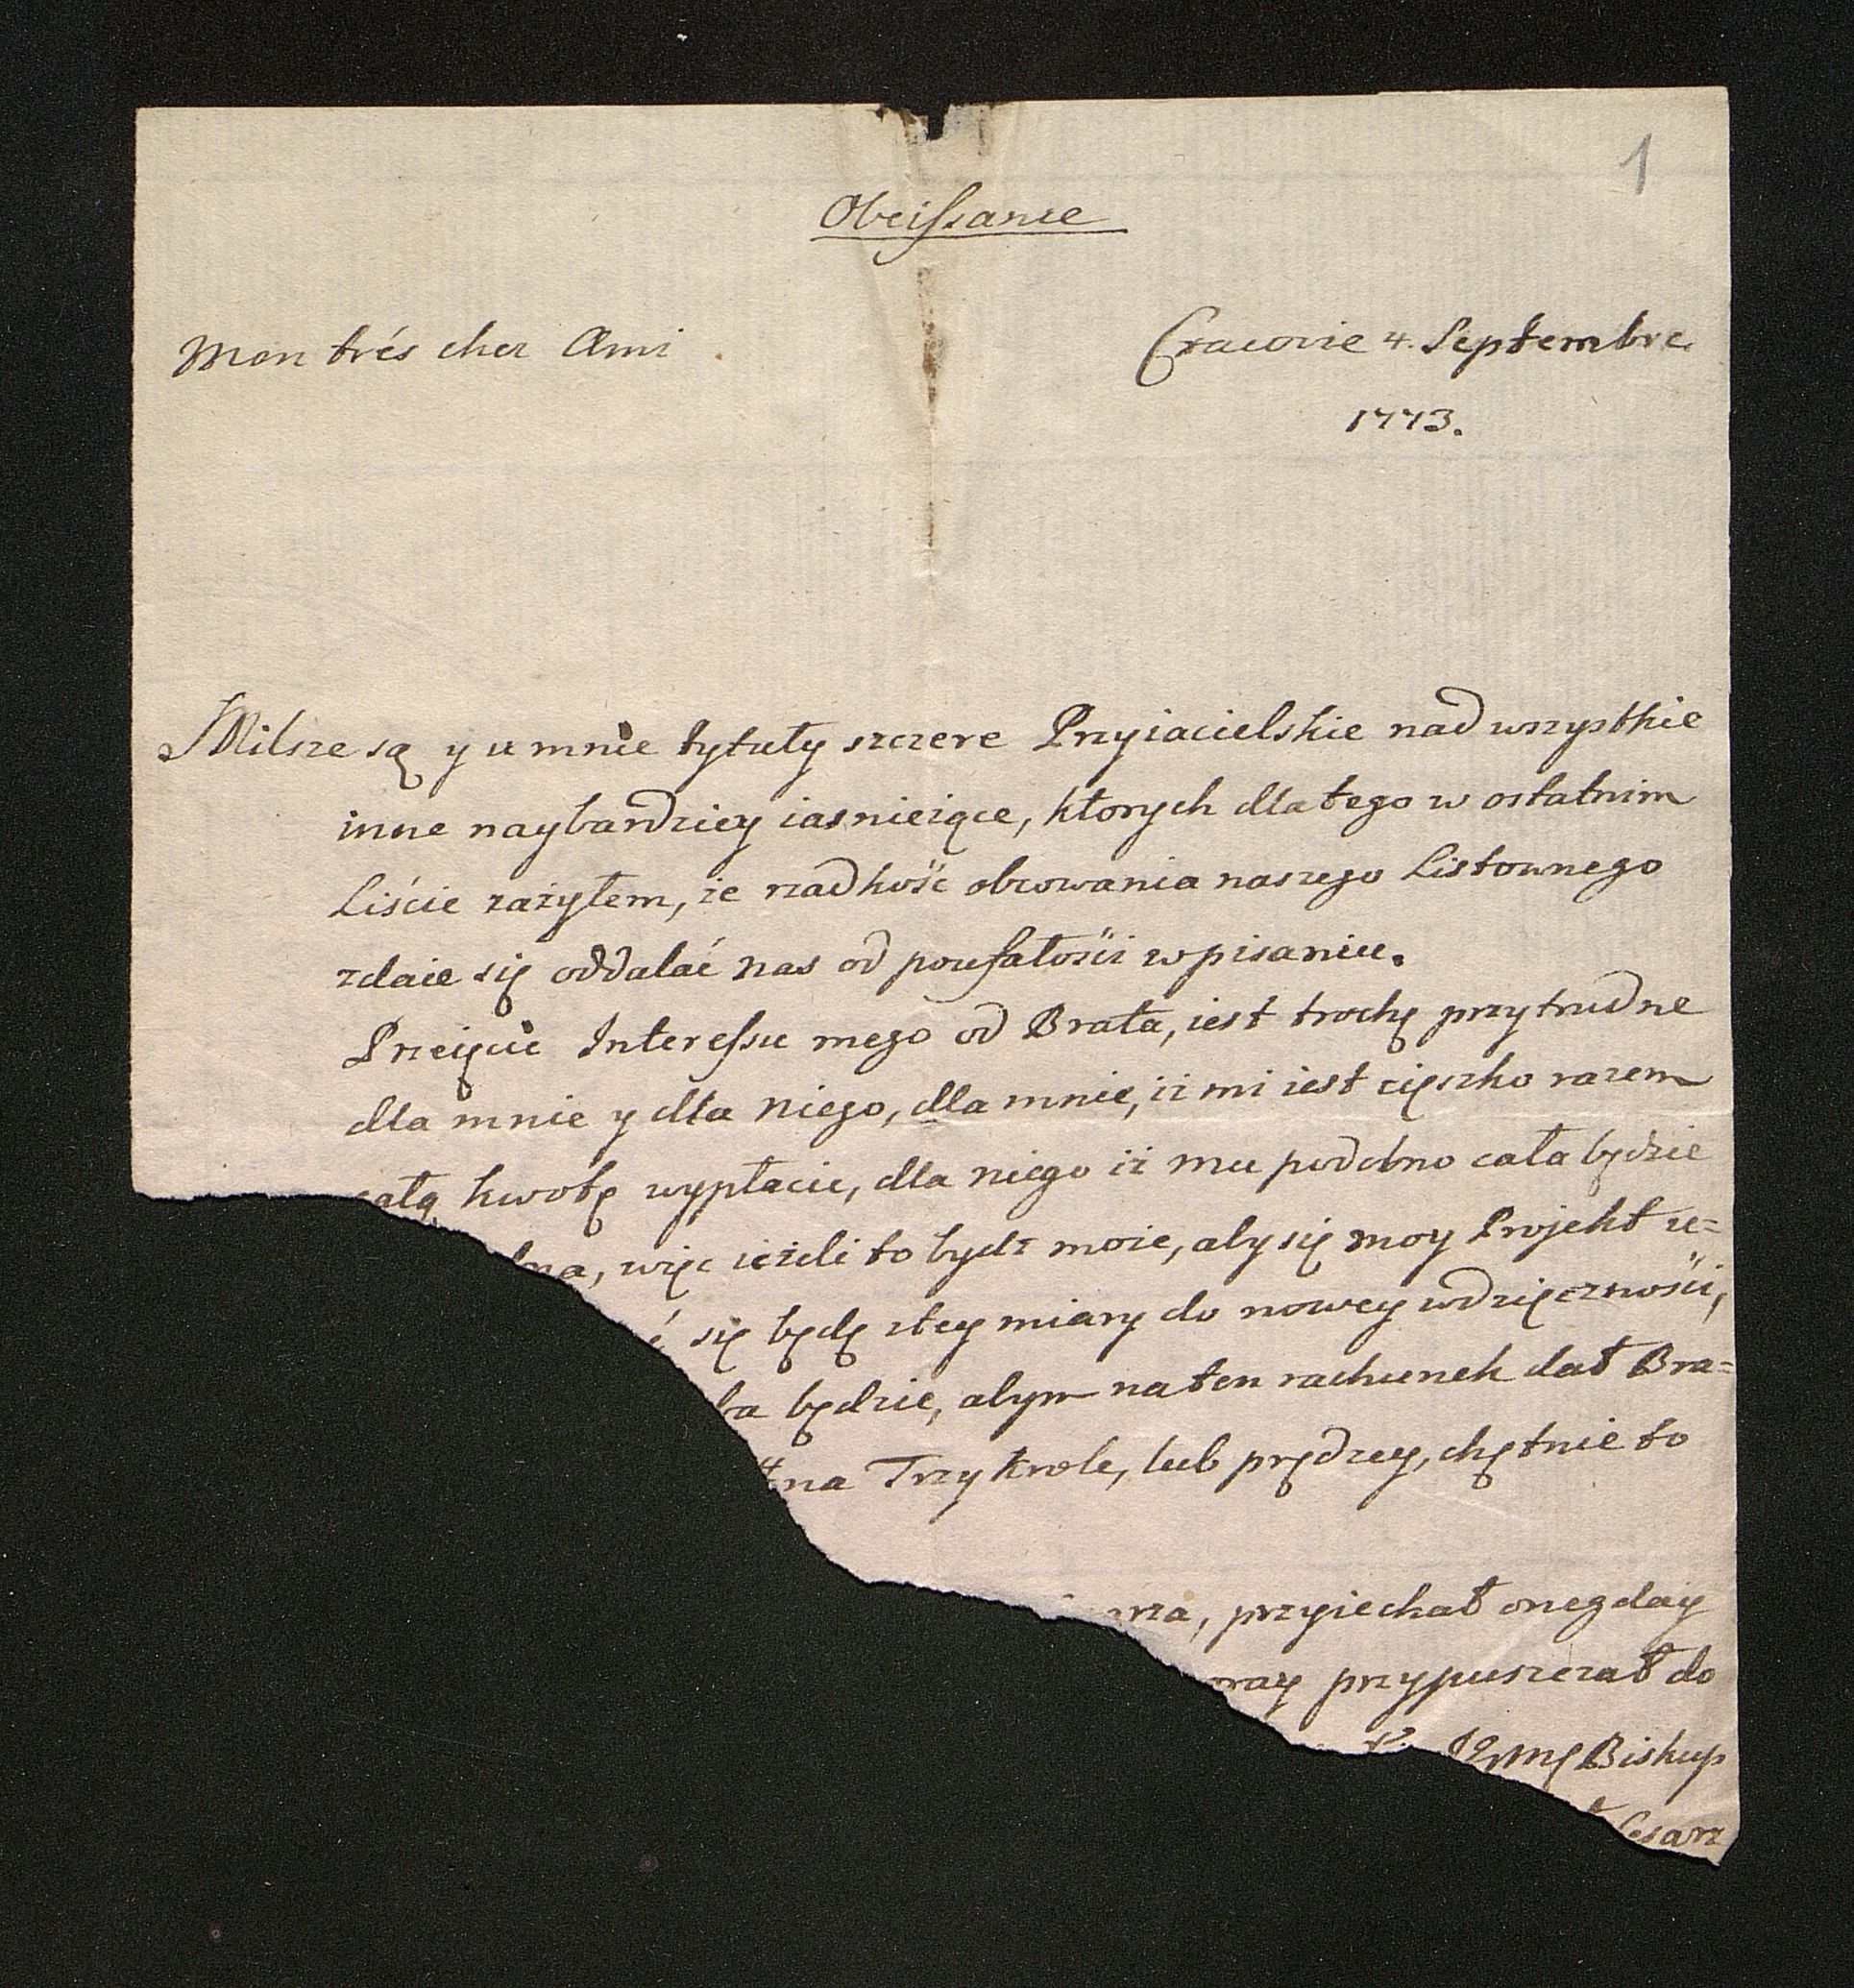 1
Obeissance
Mon trés cher Ami
Cracovie 4. Septembre
1773.
Milsze są y u mnie tytuły szczere Przyiacielskie nad wszystkie
inne naybardziey iasnieiące, ktorych dla tego w ostatnim
Liście zażyłem, że rzadkość obcowania naszego Listownego
zdaie się oddalać nas od poufałości w pisaniu.
Przeięcie Interessu mego od Brata, iest trochę przytrudne
dla mnie y dla niego, dla mnie, iż mi iest cięszko razem
całą kwotę wypłacić, dla niego iż mu podobno cała będzie
więc ieżeli to bydz moze, aby się moy Projekt u=
się będę z tey miary do nowey wdzięczności,
będzie, abym na ten rachunek dał Bra=
na Trzy Krole, lub prędzey, chętnie to
przyiechał onegday
przypuszczał do
Biskup
Cesarz